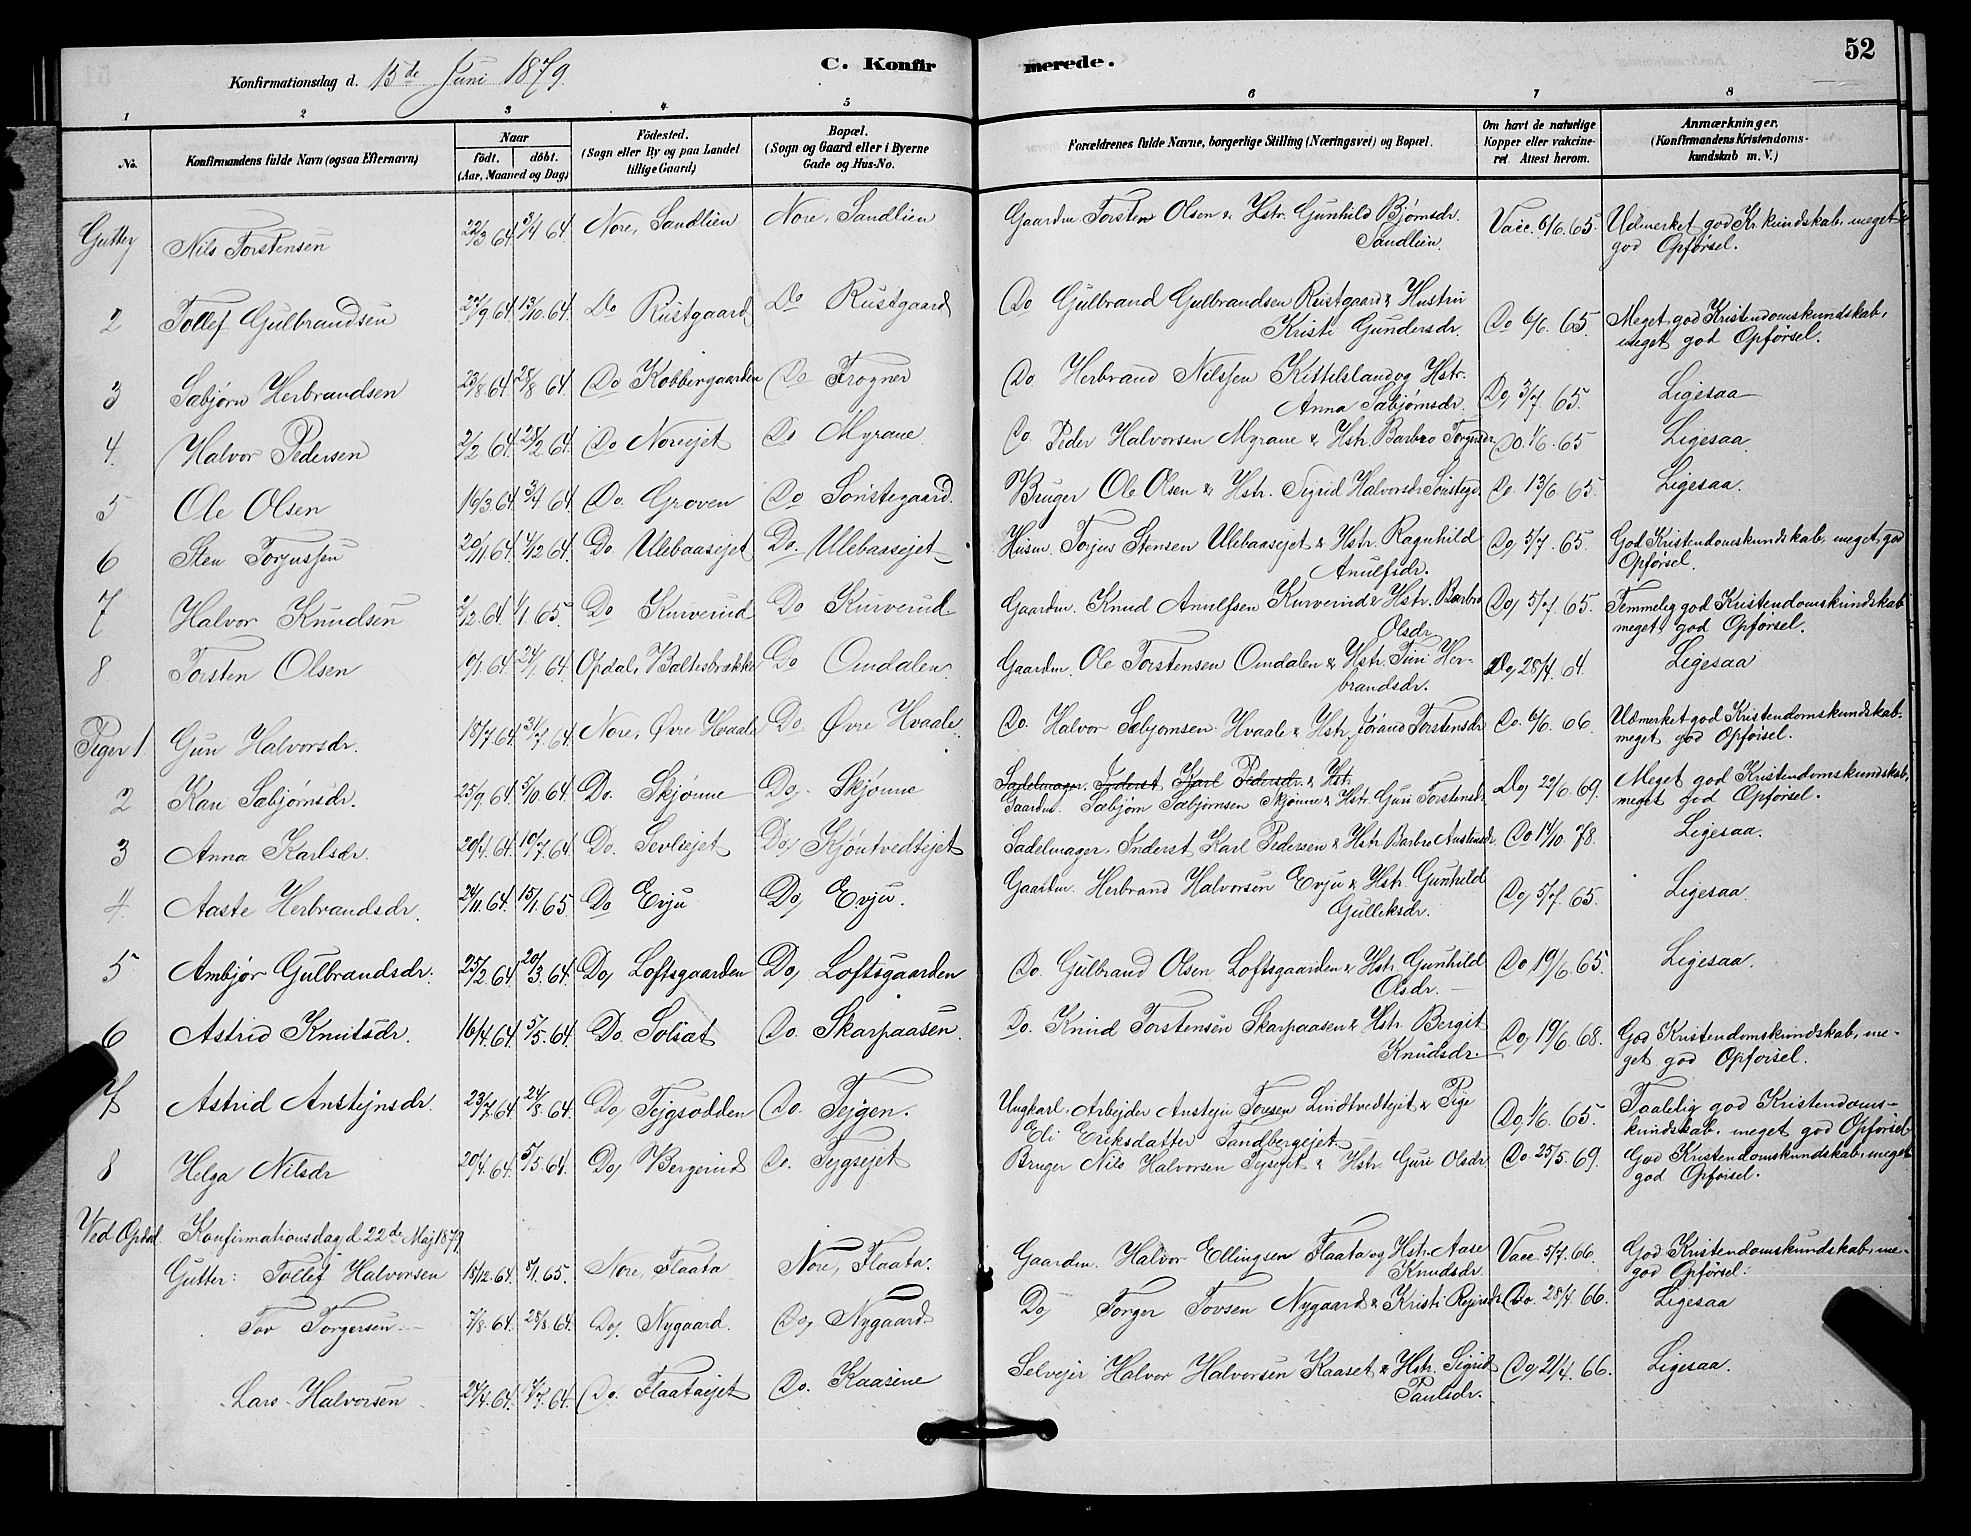 52
Konfirmationsdag d. 15de Juni 1879.
C. Konfirmerede.
1 2 3 4 5 6 7 8
No. Konfirmandens fulde Navn (ogsaa Efternavn) Naar födt. döbt. (Aar, Maaned og Dag) Födested. (Sogn eller By og paa Landet tillige Gaard) Bopæl. (Sogn og Gaard eller i Byerne Gade og Hus-No. Forældrenes fulde Navne, borgerlige Stilling (Næringsvei) og Bopæl. Om havt de naturlige Kopper eller vakcineret. Attest herom. Anmærkninger. (Konfirmandens Kristendomskundskab m. V.)
Gutter Nils Torstensen 22/3 64 3/4 64 Nore, Sandlien Nore, Sandlien Gaardm. Torsten Olsen & Hstr. Gunhild Bjørnsdr. Sandlien Vacc. 6/6. 65. Udmerket god Kr. kundskab, meget god Opførsel.
2 Tollef Gulbrandsen 27/9 64 13/10. 64. Do Rustgaard Do Rustgaard Do Gulbrand Gulbrandsen Rustgaard & Hustru Kristi Gundersdr. Do 6/6. 65. Meget god Kristendomskundskab, meget god Opførsel.
3 Sæbjørn Herbrandsen 23/8 64 28/8 64 Do Kobbergaarden Do Frogner Do Herbrand Nilssen Kittelsland og Hstr. Anna Sæbjørnsdr. Do, 3/7 65. Ligesaa
4. Halvor Pedersen 2/2 64 28/2 64. Do Noreejet Do Myrane Do Peder Halvorsen Myrane & Hstr. Barbro Do. 1/6. 65 Ligesaa
5 Ole Olsen 16/3 64 3/4 64 Do. Groven Do Sønstegaard. Bruger Ole Olsen & Hstr. Sigrid Halvorsdr Sønstegd. Do. 13/6 65. Ligesaa.
6 Sten Torjussen 20/11 64. 4/12 64. Do. Ulebaasejet Do. Ulebaasejet Husm. Torjus Stensen Ulebaasejet & Hstr. Ragnhild Anulfsdr. Do, 5/7. 65. God Kristendomskundskab, meget god Opførsel.
7 Halvor Knudsen 2/12. 64. 1/1 65. Do Kurverud Do Kurverud Gaardm. Knud Anulfsen Kurverud & Hstr. Barbro Olsdr Do, 5/7. 65. Temmelig god Kristendomskundskab meget god Opførsel.
8 Torsten Olsen 10/1 64. 24/1 64. Opdal, Baltesbrække Do Omdalen Gaardm. Ole Torstensen Omdalen & Hstr. Turi Herbrandsdr. Do, 28/4. 64. Ligesaa
Piger 1 Gun Halvorsdr. 18/7 64 31/7 64 Nore, Øvre Hvaale Do Øvre Hvaale. Do. Halvor Sæbjørnsen Hvaale & Hstr. Jørand Torstensdr Do. 6/6. 66. Udmerket god Kristendomskundskab. meget god Opførsel.
2 Kari Sæbjørnsdr. 25/9 64 5/10. 64 Do. Skjønne Do, Skjønne Sadelmager. Inderst Karl Pedersdr. & Hstr. Gaardm. Sæbjørn Sæbjørnsen Skjønne & Hstr. Guri Torstensdr Do, 22/6. 69. Meget god Kristendomskundskab, meget god Opførsel.
3 Anna Karlsdr. 20/4 64. 10/7 64 Do. Sevliejet Do, Kjøntvedtejet Sadelmager. Inderst Karl Pedersen & Hstr. Barbro Anstensdr. Do 14/10 78. Ligesaa.
4. Aaste Herbrandsdr. 24/11. 64. 15/1 65 Do Evju Do, Evju. Gaardm. Herbrand Halvorsen Evju & Hstr. Gunhild Gulleksdr. Do, 5/7. 65. Ligesaa
5 Ambjør Gulbrandsdr. 25/2 64 20/3. 64. Do, Loftsgaarden Do, Loftsgaarden Do. Gulbrand Olsen Loftsgaarden & Hstr. Gunhild Olsdr. Do, 19/6. 65. Ligesaa.
6 Astrid Knutsdr. 16/4. 64 5/5. 64 Do. Solsat Do. Skarpaasen. Do. Knud Torstensen Skarpaasen & Hstr. Bergit Knudsdr. Do, 19/6. 68. God Kristendomskundskab, meget god Opførsel.
7 Astrid Anstejnsdr. 23/7. 64 24/8. 64. Do, Tejgsodden Do. Tejgen. Ungkarl, Arbejder Anstejn Toresen Lindtvedtejet & Pige Eli Eriksdatter Tandbergejet Do, 1/6. 65. Taalelig god Kristendomskundskab, meget god Opførsel
8 Helga Nilsdr 20/4. 64. 5/5. 64. Do, Bergerud Do. Tejgsejet Bruger Nils Halvorsen Tejsejet & Hstr. Guri Olsdr Do. 25/5. 69. God Kristendomskundskab, meget god Opførsel.
Ved Opdal Konfirmationsdag d. 22de Maj 1879
Gutter: Tollef Halvorsen 15/12. 64. 8/1. 65. Nore, Flaata Nore, Flaata. Gaardm. Halvor Ellingsen Flaata og Hstr. Aase Knudsdr. Vacc. 5/7. 66. God Kristendomskundskab, me- god Opførsel.
Tov Torgersen 7/8. 64. 28/8 64. Do, Nygaard. Do, Nygaard Do, Torger Tovsen Nygaard & Kristi Do. 28/4. 66. Ligesaa
Lars Halvorsen 24/4. 64. 3/7. 64. Do. Flaataejet Do. Kaasene Selvejer Halvor Halvorsen Kaaset & Hstr. Sigrid Paulsdr. Do, 21/4. 66. Ligesaa.